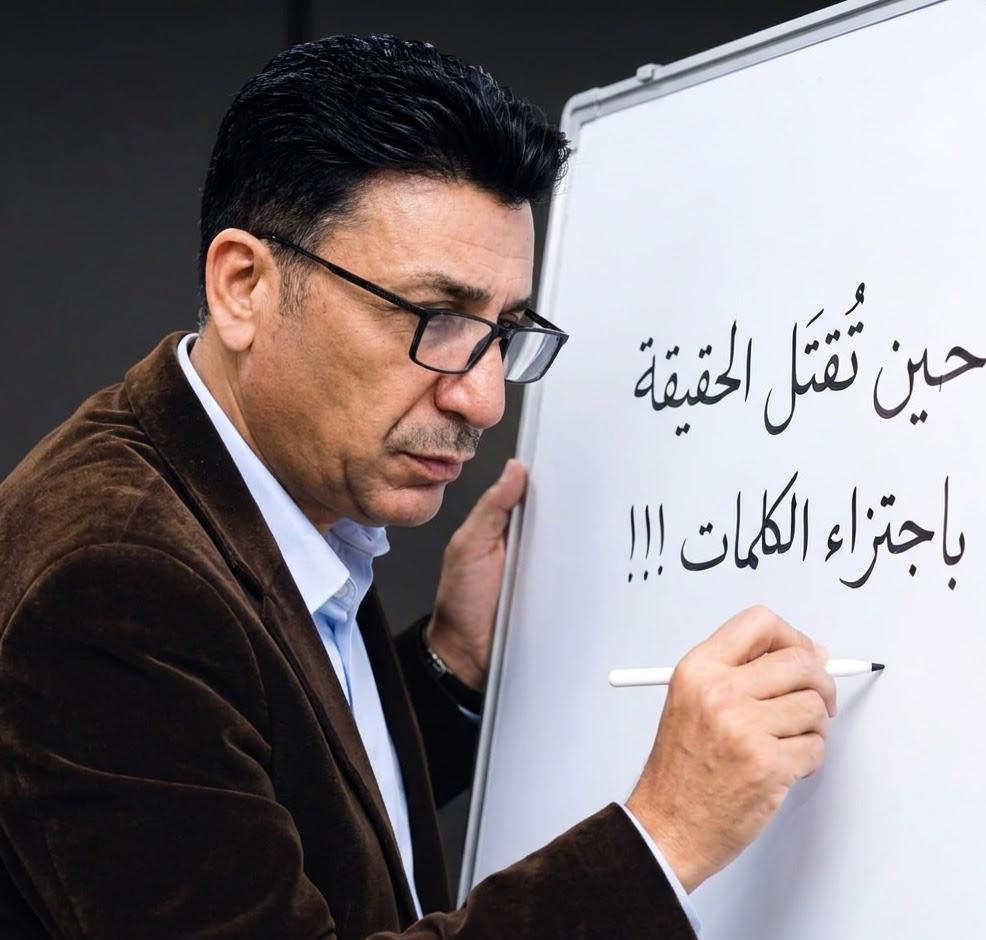 حين تُقتَل الحقيقة
باجتزاء الكلمات !!!